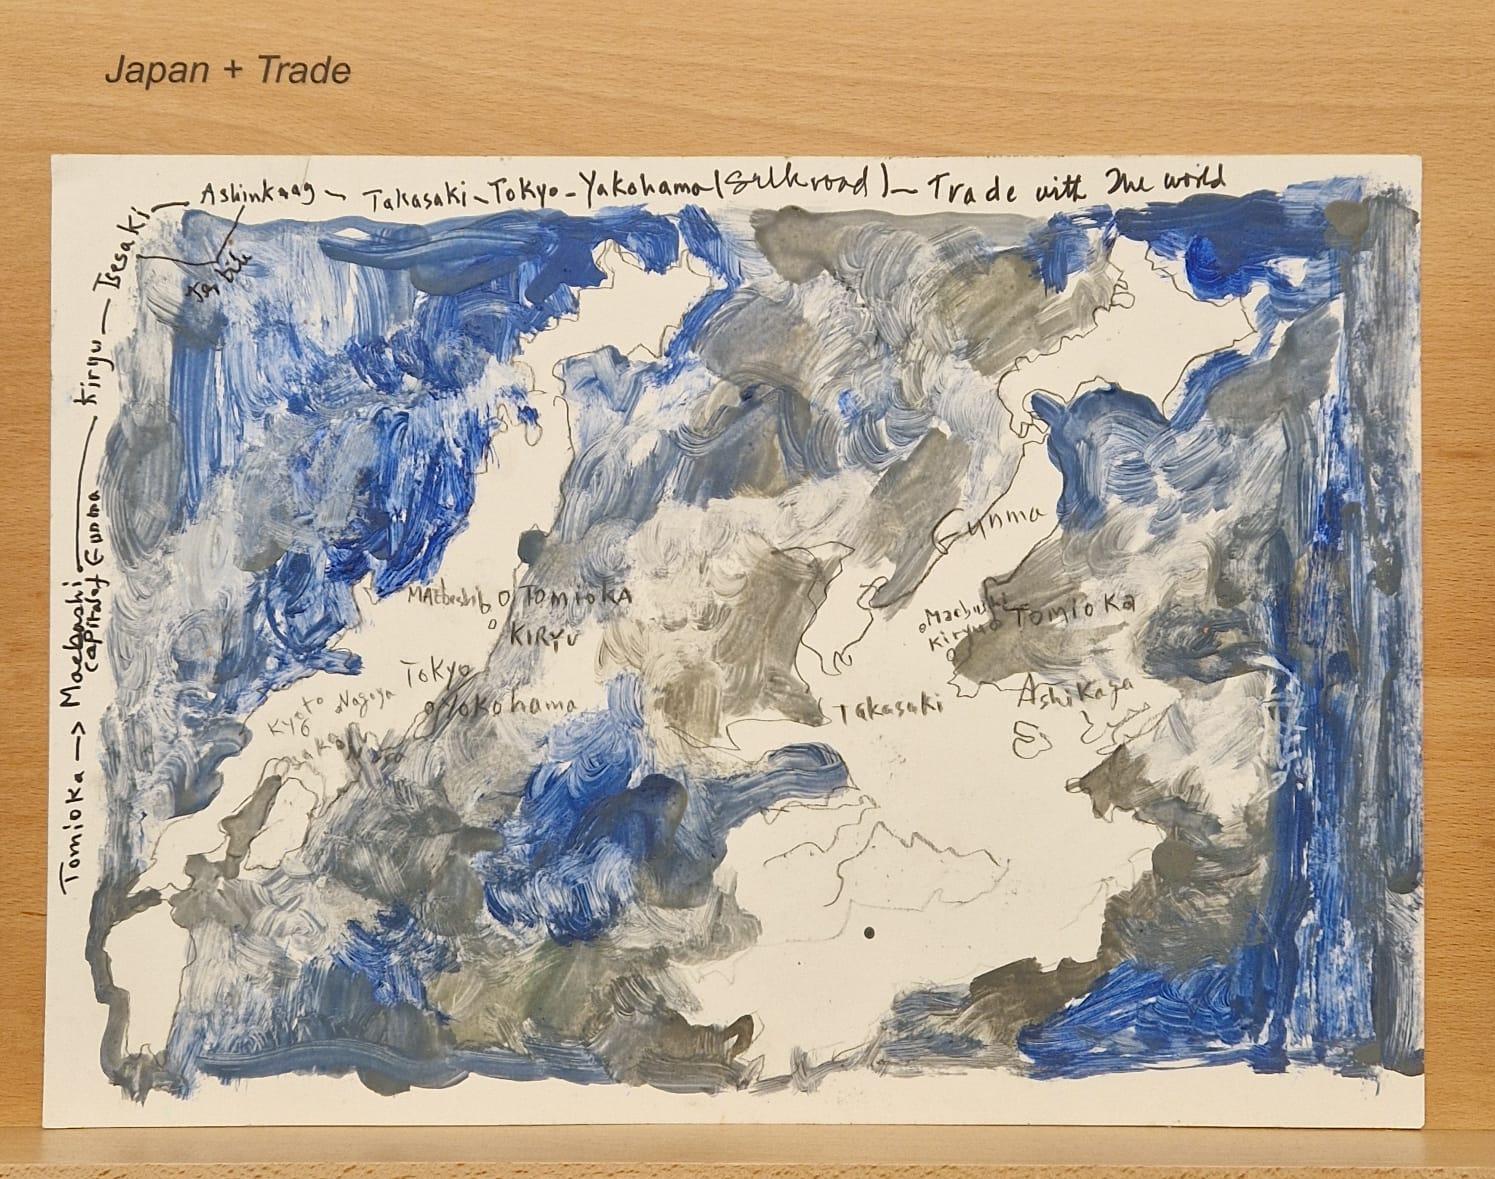 Japan + Trade
Tomioka -> Maebashi — Kiryu — Isesaki — Ashinkaag ~ Takasaki - Tokyo - Yakohama (Silk road) - Trade with The world
capital of Gunma
MAEbashi
TOMIOKA
KIRYU
Tokyo
Yokohama
Kyoto
Nagoya
Gunma
Maebashi
TOMIOKa
Kiryu
AshiKaga
Takasaki